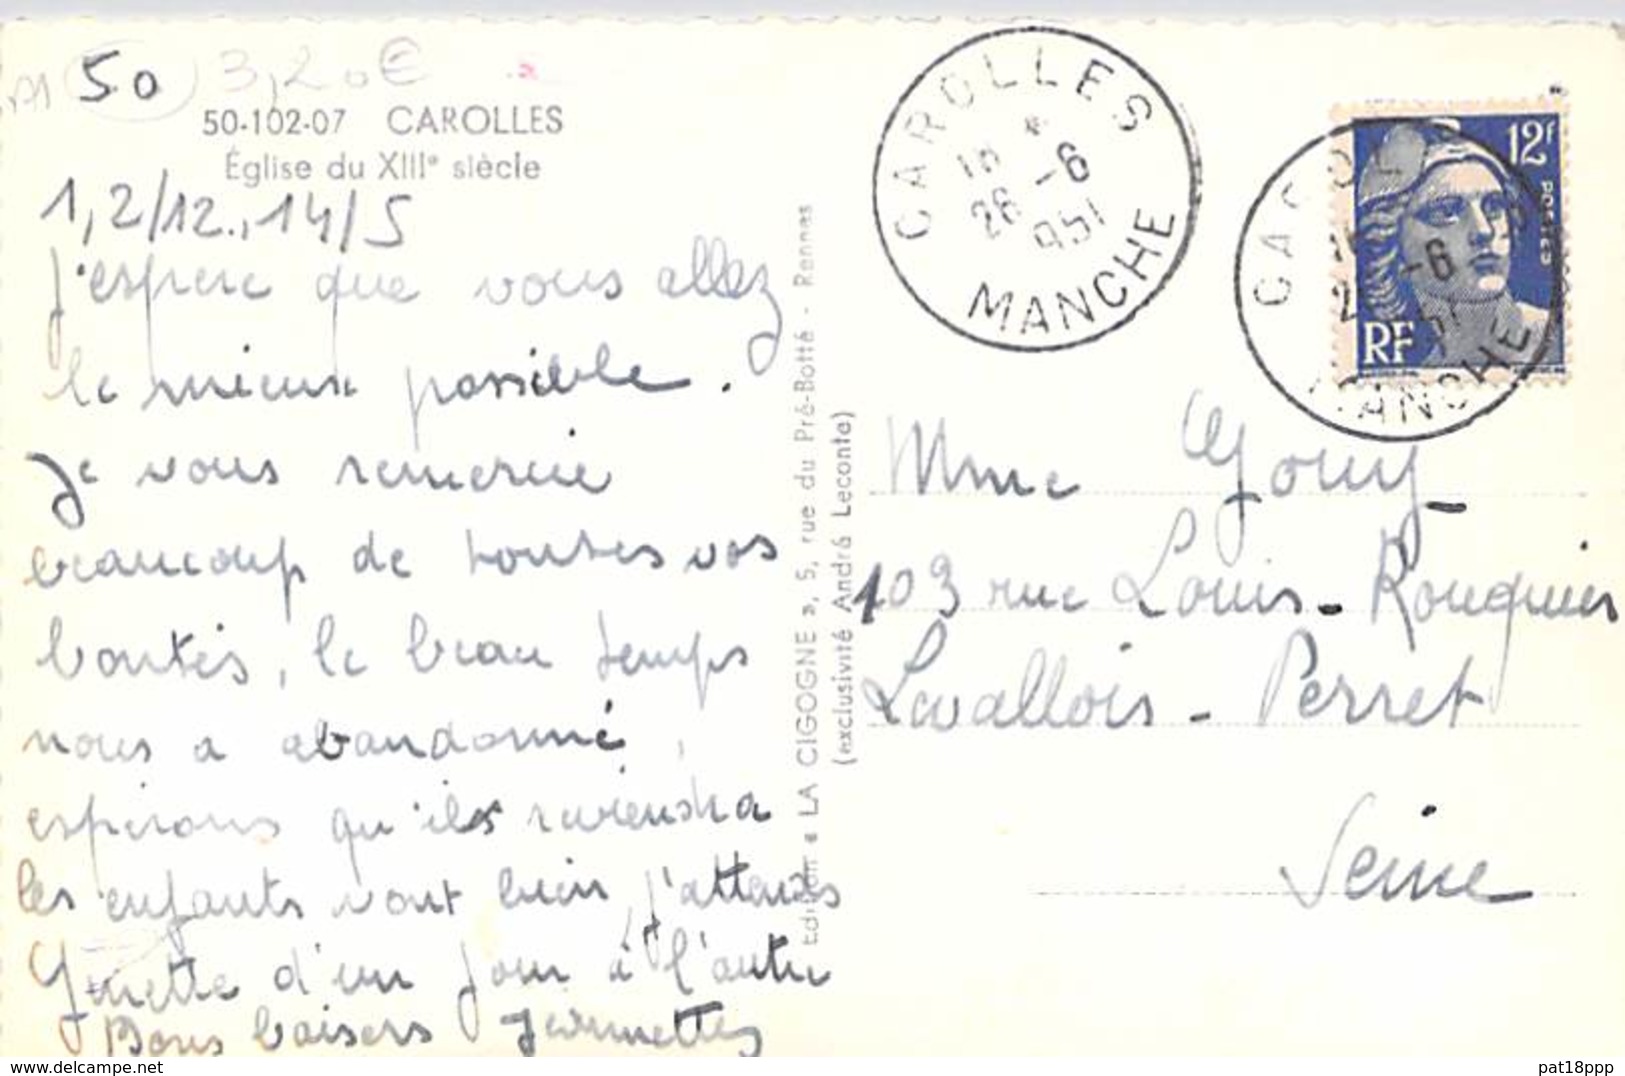 50 3,20€
50-102-07 CAROLLES
Église du XIIIe siècle
1,2/12., 14/5
J'espère que vous allez
le mieux possible.
Je vous remercie
beaucoup de toutes vos
bontés, le beau temps
nous a abandonné,
espérons qu'il reviendra
les enfants vont bien, j'attends
Ginette d'un jour à l'autre
Bons baisers Jeannette
Edition « LA CIGOGNE », 5, rue du Pré-Botté - Rennes
(exclusivité André Leconte)
CAROLLES
18 *
26 -6
1951
MANCHE
12f
POSTES
RF
CAROLLES
-6
MANCHE
Mme Gouy
103 rue Louis-Rouquier
Levallois-Perret
Seine
pat18ppp